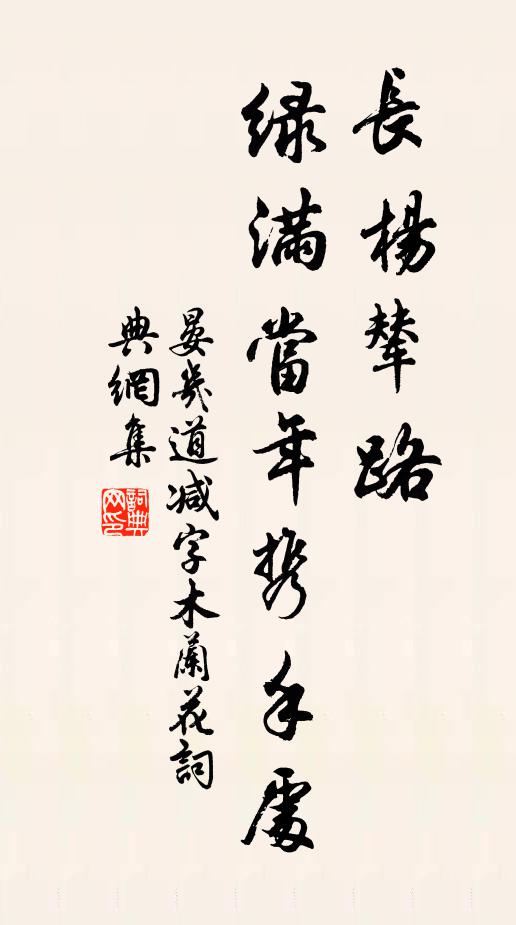 長楊輦路
綠滿當年攜手處
晏幾道減字木蘭花詞
典網集
詞典網印